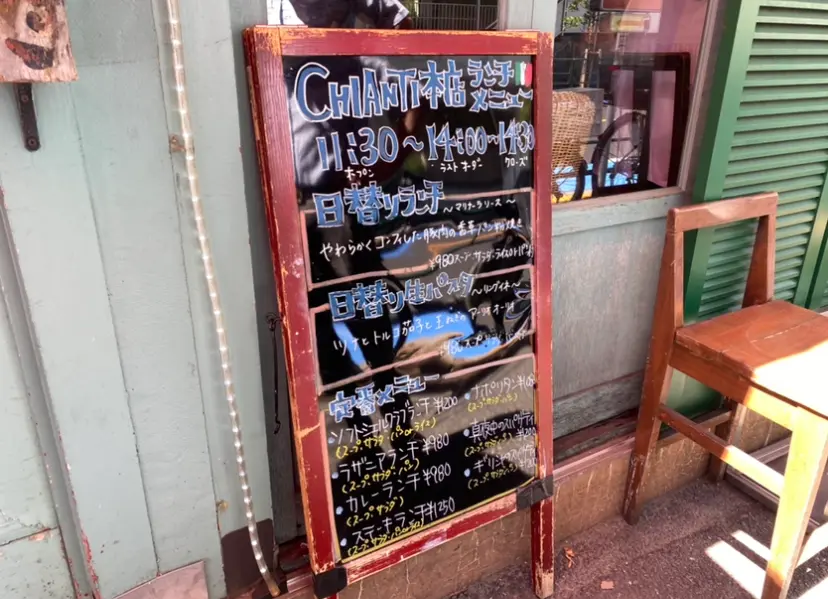 CHIANTI本店 ランチメニュー
11:30～14:00～14:30
オープン ラストオーダー クローズ
日替りランチ ～マリナーラソース～
やわらかくコンフィした豚肉の香草パン粉焼き
¥980 スープ・サラダ・ライスorパン
日替り生パスタ ～リングイネ～
ツナとトルコ茄子と玉ねぎのアーリオオーリオ
定番メニュー
ソフトシェルクラブランチ ¥1200
(スープ・サラダ・パンorライス)
・ラザニアランチ ¥980
(スープ・サラダ・パン)
・カレーランチ ¥980
(スープ・サラダ)
・ステーキランチ ¥1250
(スープ・サラダ・パンorライス)
・ナポリタン
(スープ・サラダ・パン)
・真夜中のスパゲティ
(スープ・サラダ・パン)
(スープ・サラダ・パン)